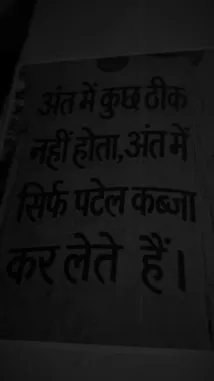 अंत में कुछ ठीक
नहीं होता, अंत में
सिर्फ पटेल कब्जा
कर लेते हैं।